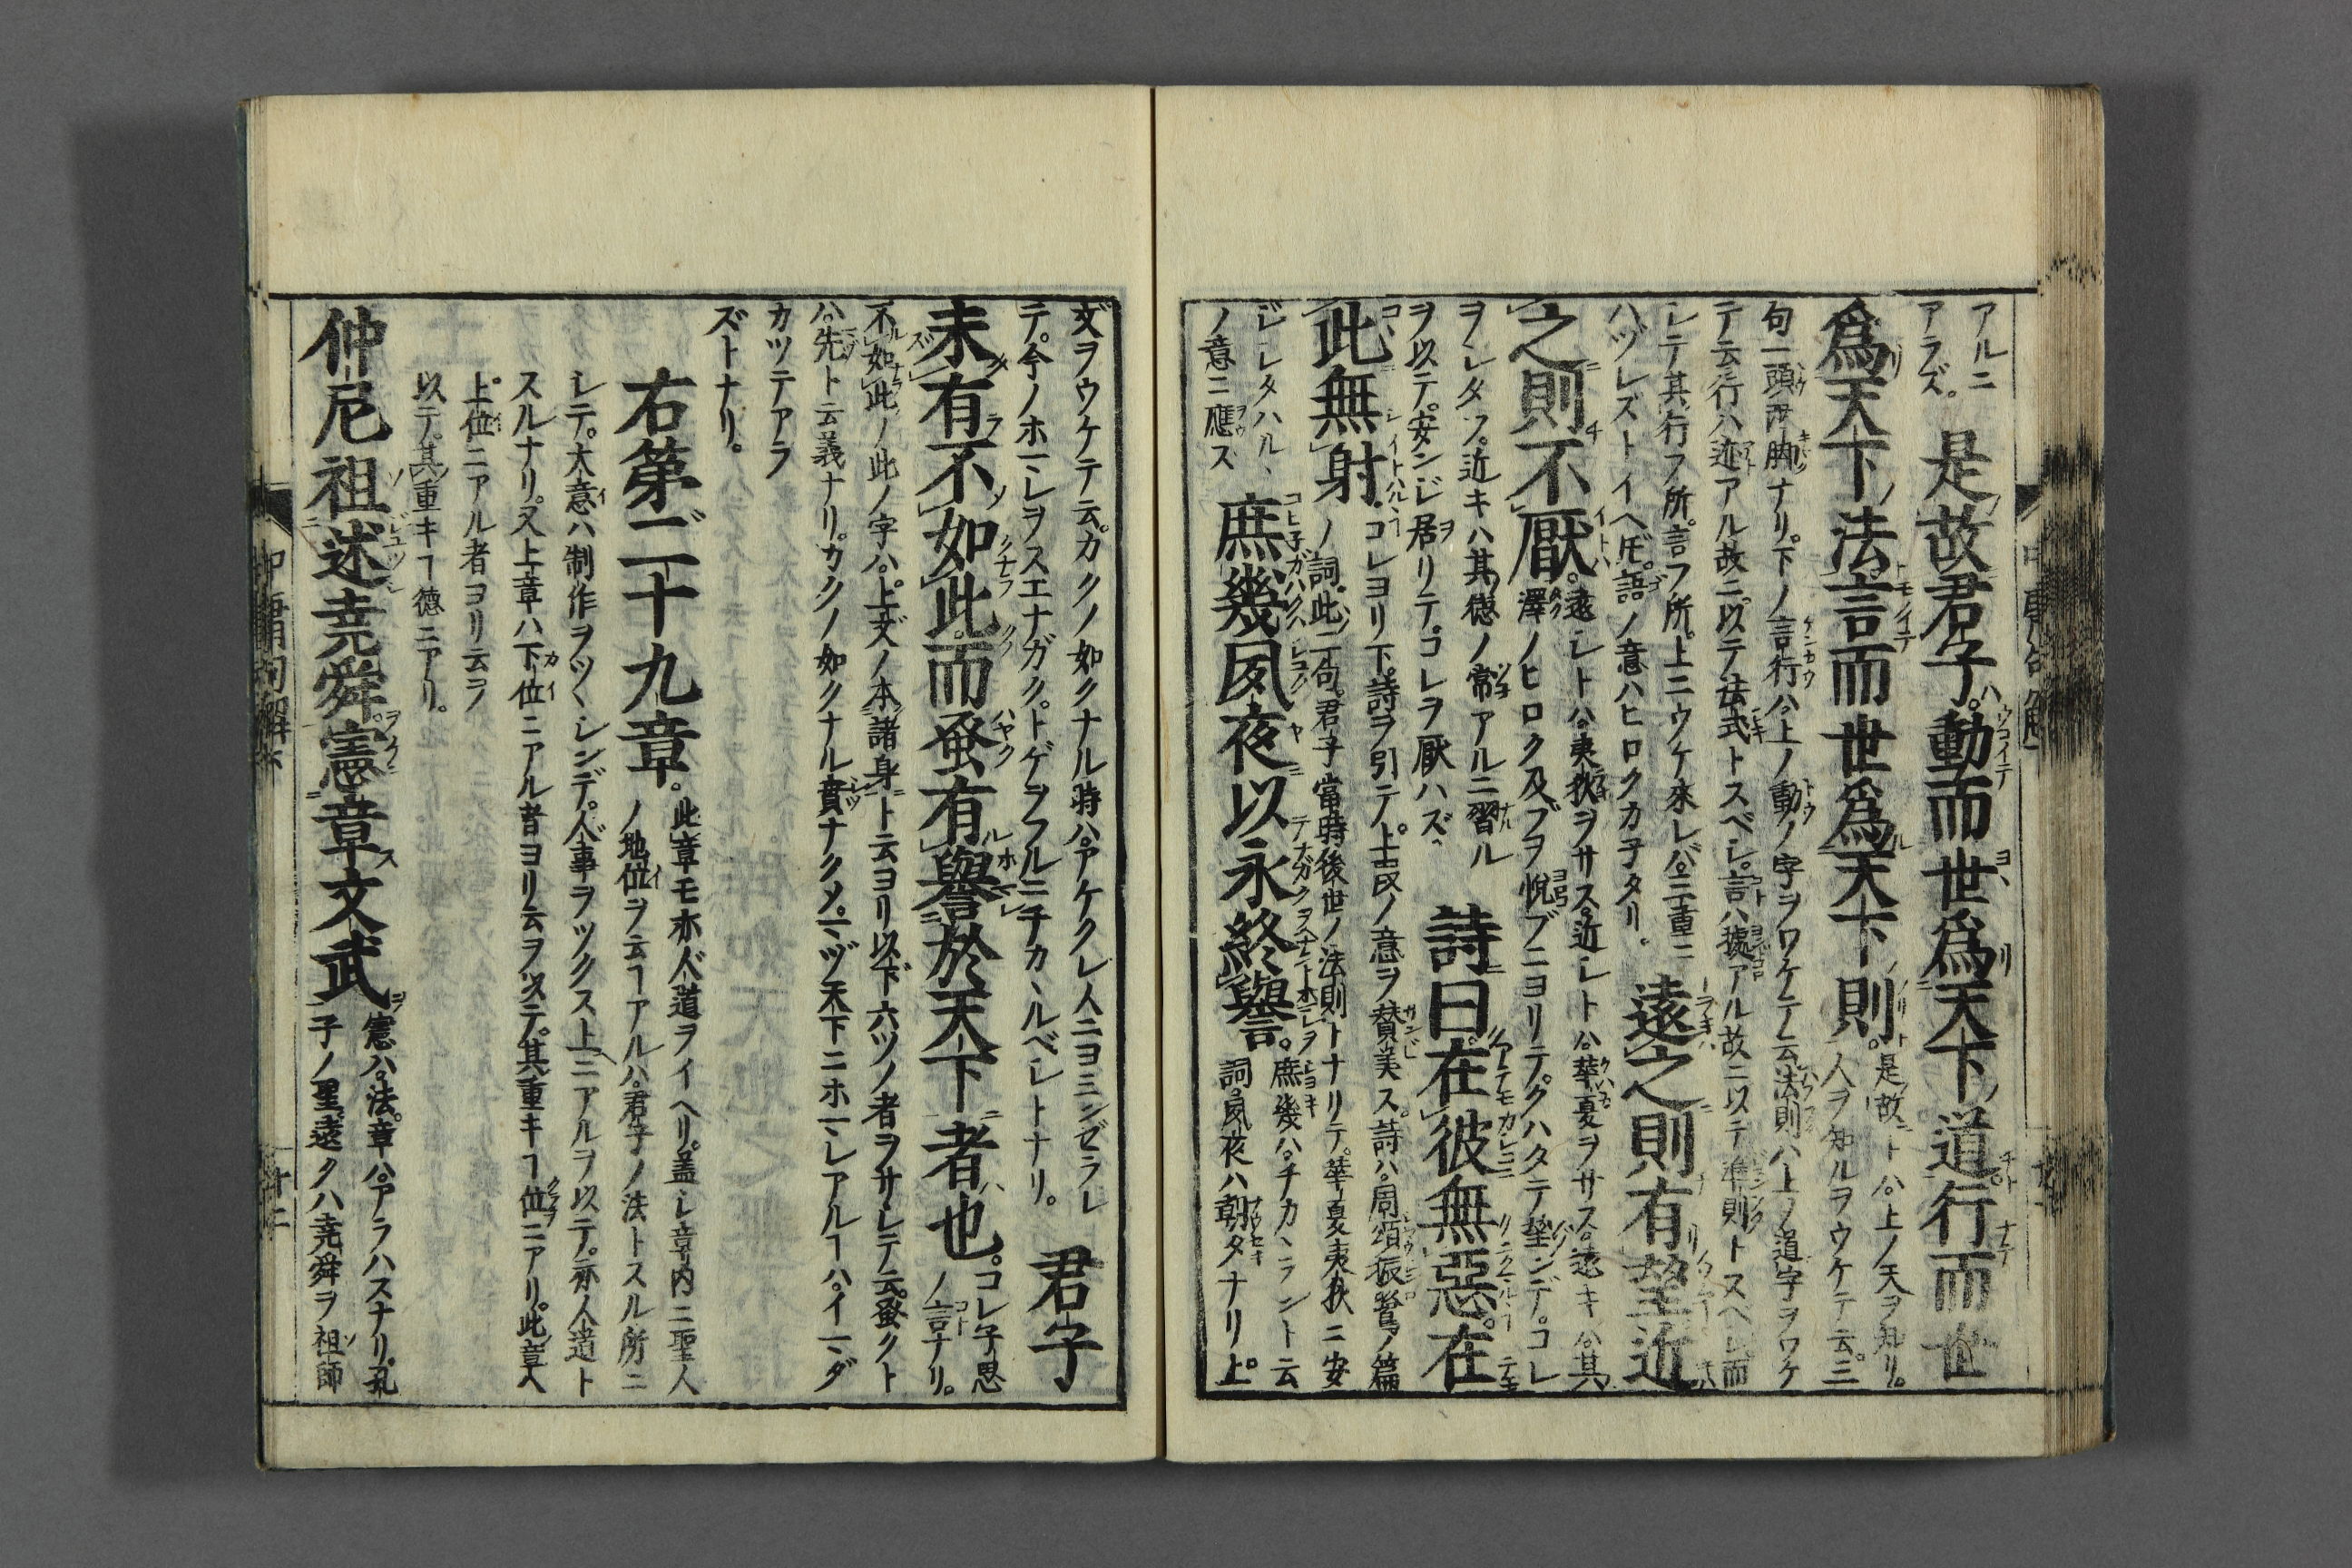 アルニ
アラズ。
是故君子。動而世爲天下道行而世
爲天下法。言而世爲天下則。
是故ニトハ。上ノ天ヲ知リ。
人ヲ知ルヲウケテ云。三
句一頭両脚ナリ。下ノ言行ハ。上ノ動ノ字ヲワケテ云。法則ハ上ノ道字ヲワケ
テ云。行ハ迹アル故ニ。以テ法式トスベシ。言ハ據アル故ニ以テ準則トスベシ。而
シテ其行フ所。言フ所。上ニウケ來レバ。三重ニ
ハヅレズトイヘドモ。語ノ意ハヒロクカヨヘリ。
遠之則有望近
之則不厭。
遠シトハ。夷狄ヲサス。近シトハ。華夏ヲサス。遠キハ。其
澤ノヒロク及ブヲ悅ブニヨリテ。クハタテ望ンデ。コレ
ヲシタフ。近キハ其徳ノ常アルニ習ル
ヲ以テ。安ンジ居リテ。コレヲ厭ハズ、
詩曰。在彼無惡。在
此無射。
コレヨリ下。詩ヲ引テ。上段ノ意ヲ賛美ス。詩ハ。周頌振鷺ノ篇
ノ詞。此二句。君子當時後世ノ法則トナリテ。華夏夷狄ニ安
ジシタハル、
ノ意ニ應ズ
庶幾夙夜以永終譽。
庶幾ハ。チカヽラント云
詞。夙夜ハ朝夕ナリ。上。
文ヲウケテ云。カクノ如クナル時ハ。アケクレ人ニヨミンゼラレ
テ。今ノホマレヲスエナガク。トゲヲフルニチカヽルベシトナリ。
君子
未有不如此而蚤有譽於天下者也。
コレ子思
ノ言ナリ。
不如此ノ此ノ字ハ。上文ノ本諸身ト云ヨリ以下六ツノ者ヲサシテ云。蚤クト
ハ。先ト云義ナリ。カクノ如クナル實ナクメ。マヅ天下ニホマレアルヿハ。イマダ
カツテアラ
ズトナリ。
右第二十九章。
此章モ亦人道ヲイヘリ。蓋シ章内ニ聖人
ノ地位ヲ云ヿアルハ。君子ノ法トスル所ニ
シテ。大意ハ制作ヲツヽシンデ。人事ヲツクス上ニアルヲ以テ。亦人道ト
スルナリ。又上章ハ下位ニアル者ヨリ云ヲ以テ。其重キヿ位ニアリ。此章ハ
上位ニアル者ヨリ云ヲ
以テ。其重キヿ徳ニアリ。
仲尼祖述堯舜。憲章文武
憲ハ。法。章ハ。アラハスナリ。孔
子ノ聖。遠クハ堯舜ヲ祖師
中庸句解六
十二